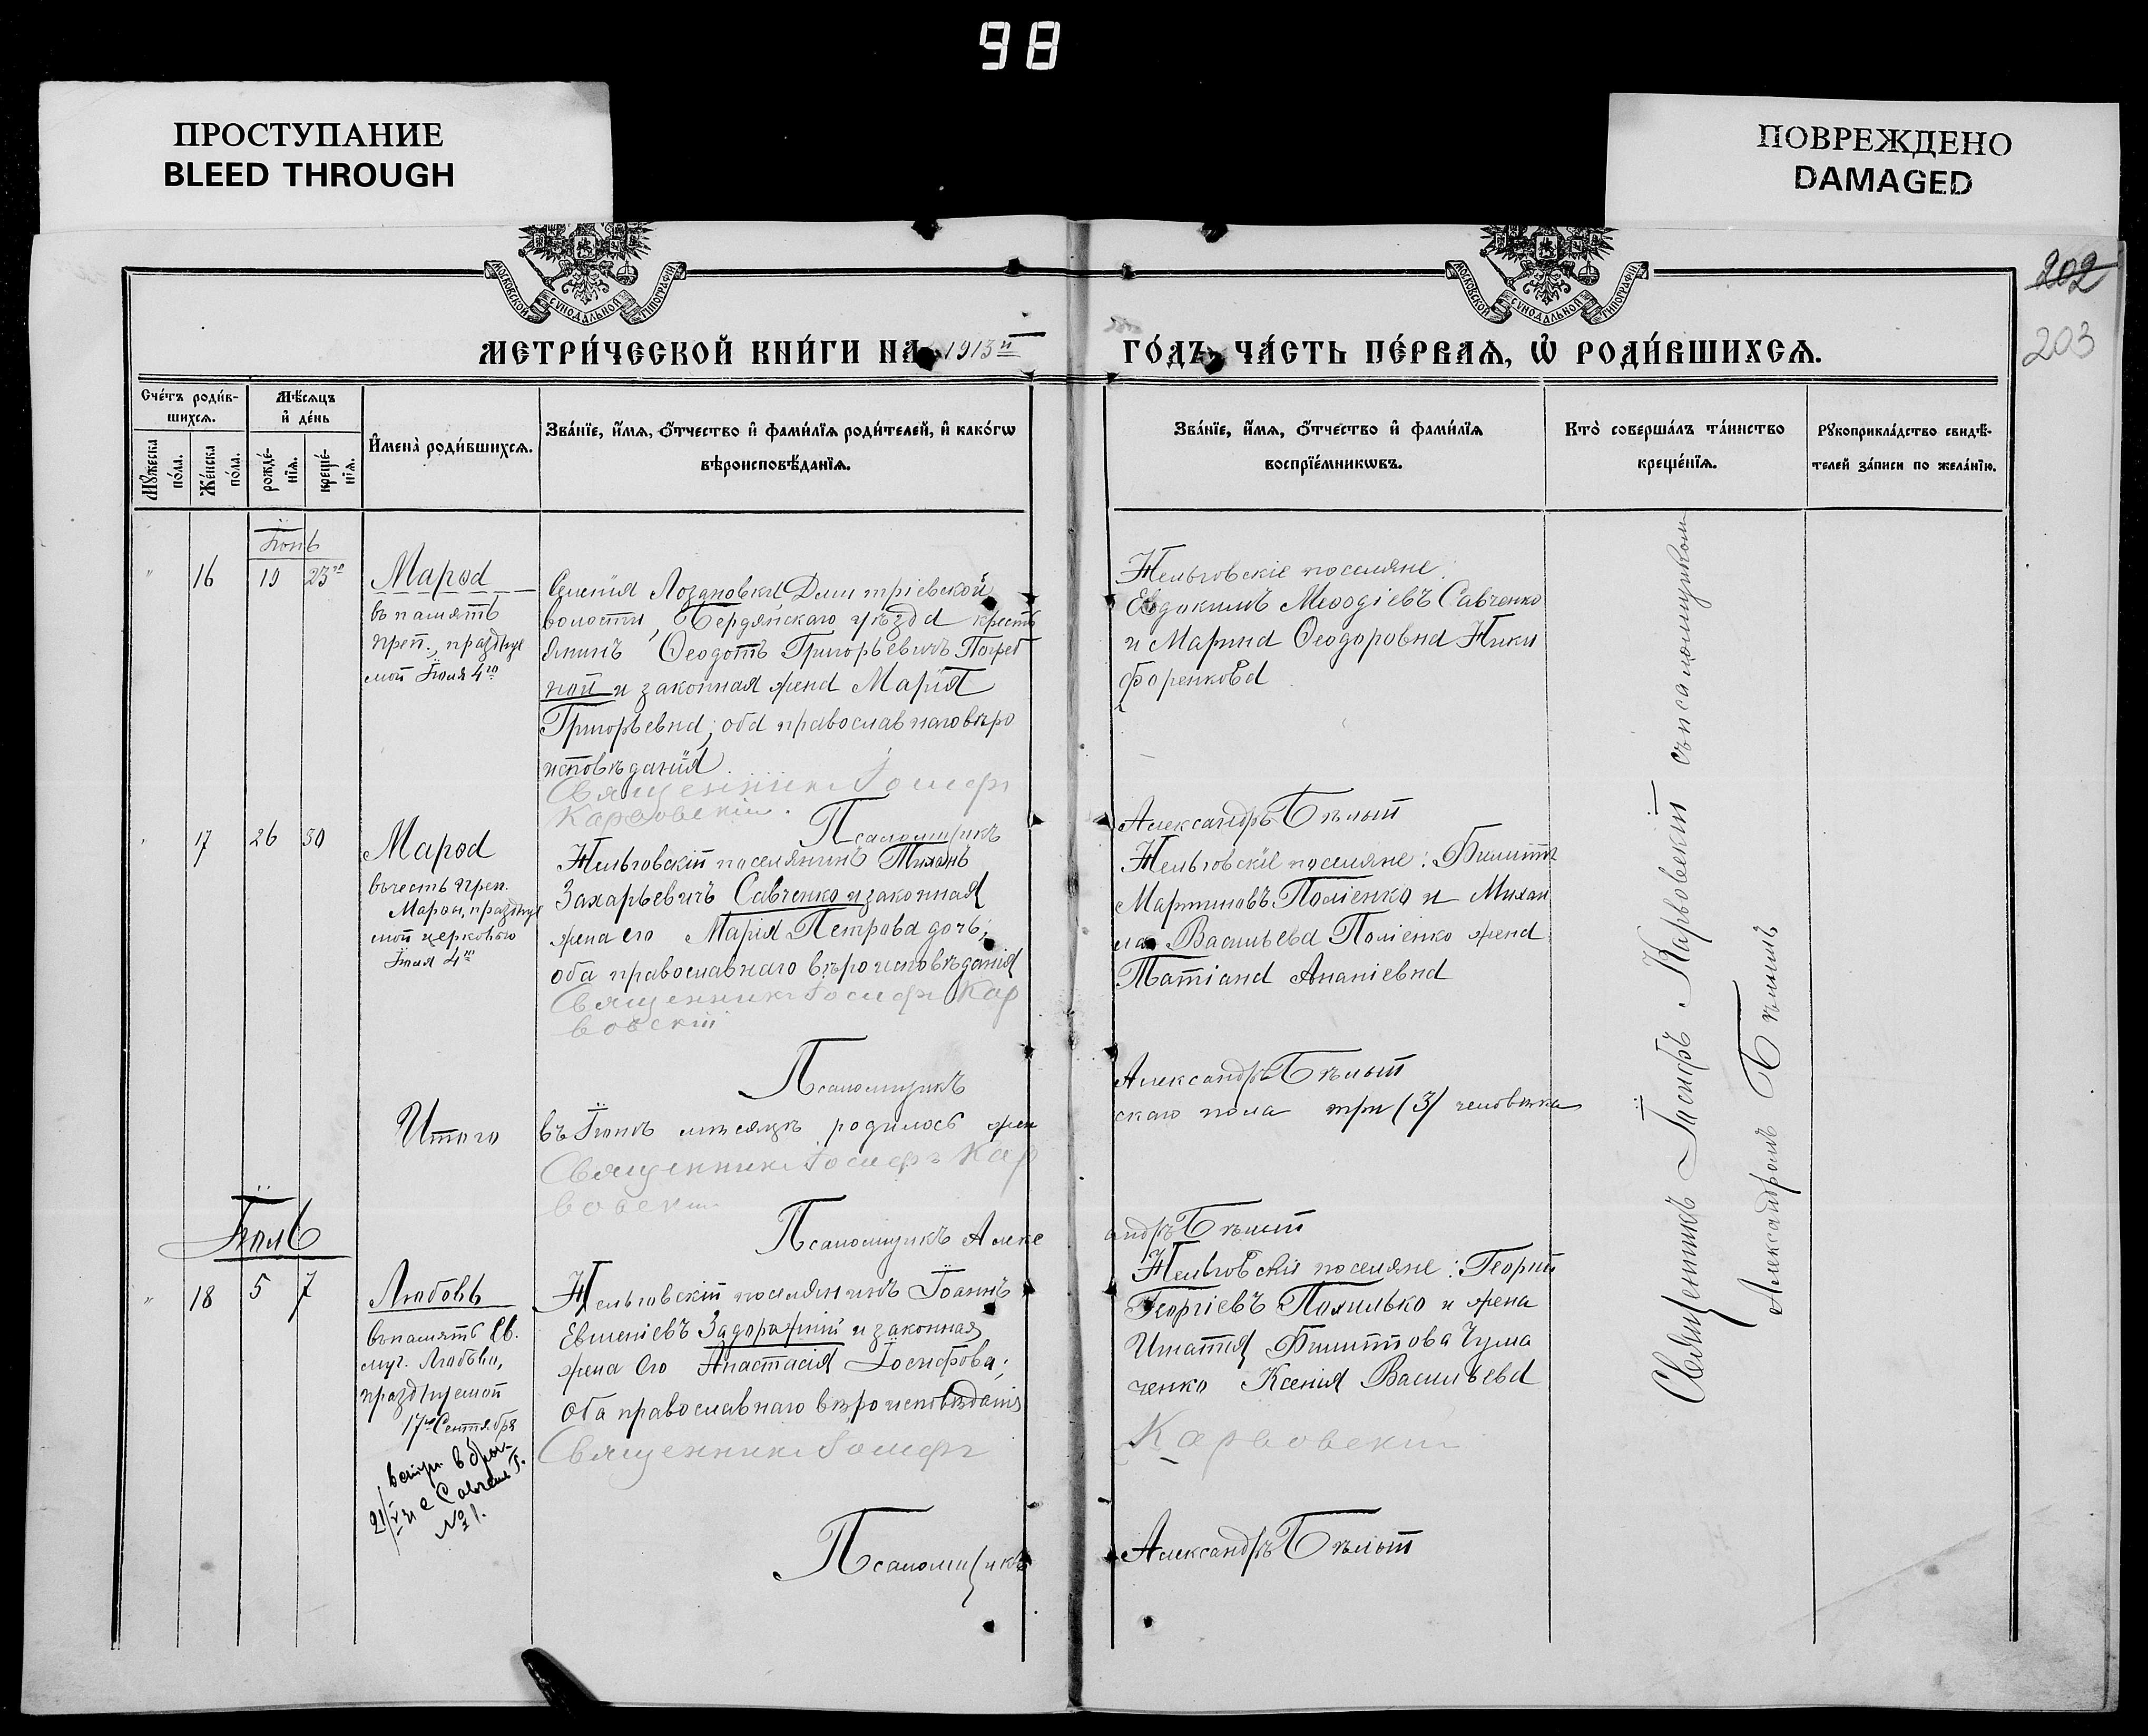 98
ПРОСТУПАНИЕ
BLEED THROUGH
ПОВРЕЖДЕНО
DAMAGED
МОСКОВСКОЙ СѴНОДАЛЬНОЙ ТИПОГРАФІИ
МОСКОВСКОЙ СѴНОДАЛЬНОЙ ТИПОГРАФІИ
202
203
МЕТРИ́ЧЕСКОЙ КНИ́ГИ НА 1913й ГО́ДЪ, ЧА́СТЬ ПЕ́РВАѦ, Ѡ҆ РОДИ́ВШИХСѦ.
Сче́тъ роди́в-
шихсѧ.
Мꙋ́жеска по́ла.
Же́нска по́ла.
Мѣ́сѧцъ
и҆ де́нь
рожде́-
нїѧ.
креще́-
нїѧ.
И҆мена̀ роди́вшихсѧ.
Зва́нїе, и҆́мѧ, ѻ҆́тчество и҆ фами́лїѧ роди́телей, и҆ како́гѡ
вѣроисповѣ́данїѧ.
Зва́нїе, и҆́мѧ, ѻ҆́тчество и҆ фами́лїѧ
воспрїе́мникѡвъ.
Кто̀ соверша́лъ та́инство
креще́нїѧ.
Рꙋкоприкла́дство свидѣ́-
телей за́писи по жела́нїю.
Іюнь
" 16 19 23го
Мароа
въ память
преп., празднуе
мой Іюля 4го
Селенія Лозановки Дмитріевской
волости, Бердянскаго уѣзда кресть
янинъ Ѳеодотъ Григорьевичъ Погреб
ной и законная жена Марія
Григорьевна, оба православнаго вѣро
исповѣданія.
Священникъ Іосифъ
Карвовскій.
Псаломщикъ
Нельговскіе поселяне
Евдокимъ Меѳодіевъ Савченко
и Марина Ѳеодоровна Ники
форенкова
Александръ Бѣлый
" 17 26 30
Мароа
въ честь преп.
Марѳы, празднуе
мой церковью
Іюля 4го
Нельговскій поселянинъ Тихонъ
Захарьевичъ Савченко и законная
жена его Марія Петрова дочь;
оба православнаго вѣроисповѣданія
Священникъ Іосифъ Кар
вовскій
Псаломщикъ
Нельговскіе поселяне: Филиппъ
Мартиновъ Поліенко и Михаи
ла Васильева Поліенко жена
Татіана Ананіевна
Александръ Бѣлый
Итого въ Іюнѣ мѣсяцѣ родилось жен
скаго пола три (3) человѣка
Священникъ Іосифъ Кар
вовскій
Псаломщикъ Алекс
андръ Бѣлый
Іюль
" 18 5 7
Любовь
въ память Св.
муч. Любови,
празднуемой
17го Сентября
21/V 31
с Савченк
№ 1.
Нельговскій поселянинъ Іоаннъ
Евгеніевъ Задорожній и законная
жена его Анастасія Іосифова;
оба православнаго вѣроисповѣданія
Священникъ Іосифъ
Карвовскій
Псаломщикъ
Нельговскіе поселяне: Георгій
Георгіевъ Похилько и жена
Игнатія Филиппова Чума
ченко Ксенія Васильева
Александръ Бѣлый
Священникъ Іосифъ Карвовскій съ псаломщикомъ
Александромъ Бѣлымъ